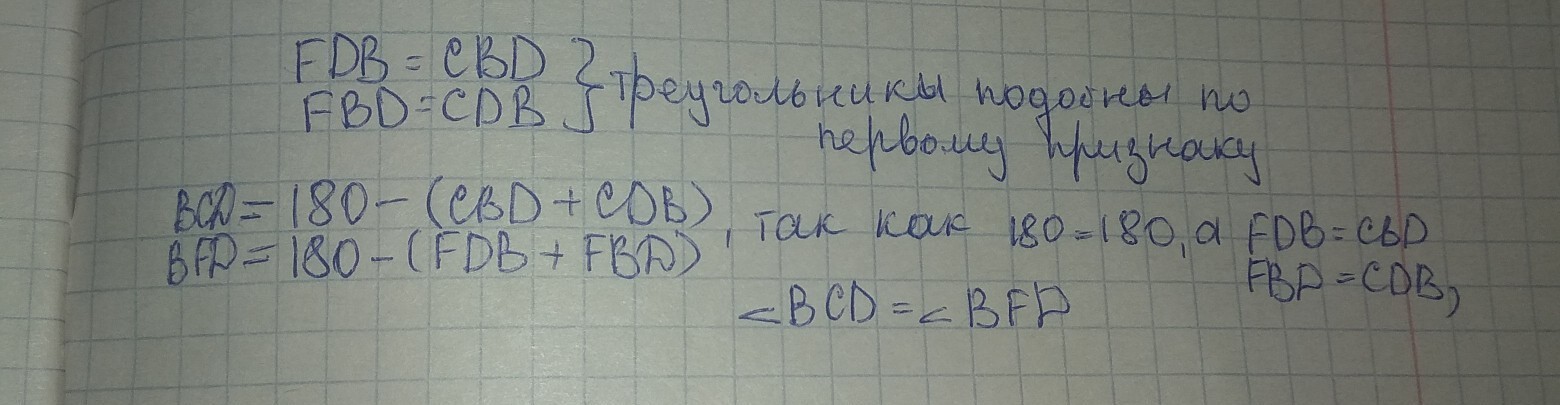 FDB = CBD } треугольники подобны по
FBD = CDB первому признаку
BCD = 180 - (CBD + CDB), так как 180 = 180, а FDB = CBD
BFD = 180 - (FDB + FBD) FBD = CDB,
∠BCD = ∠BFD